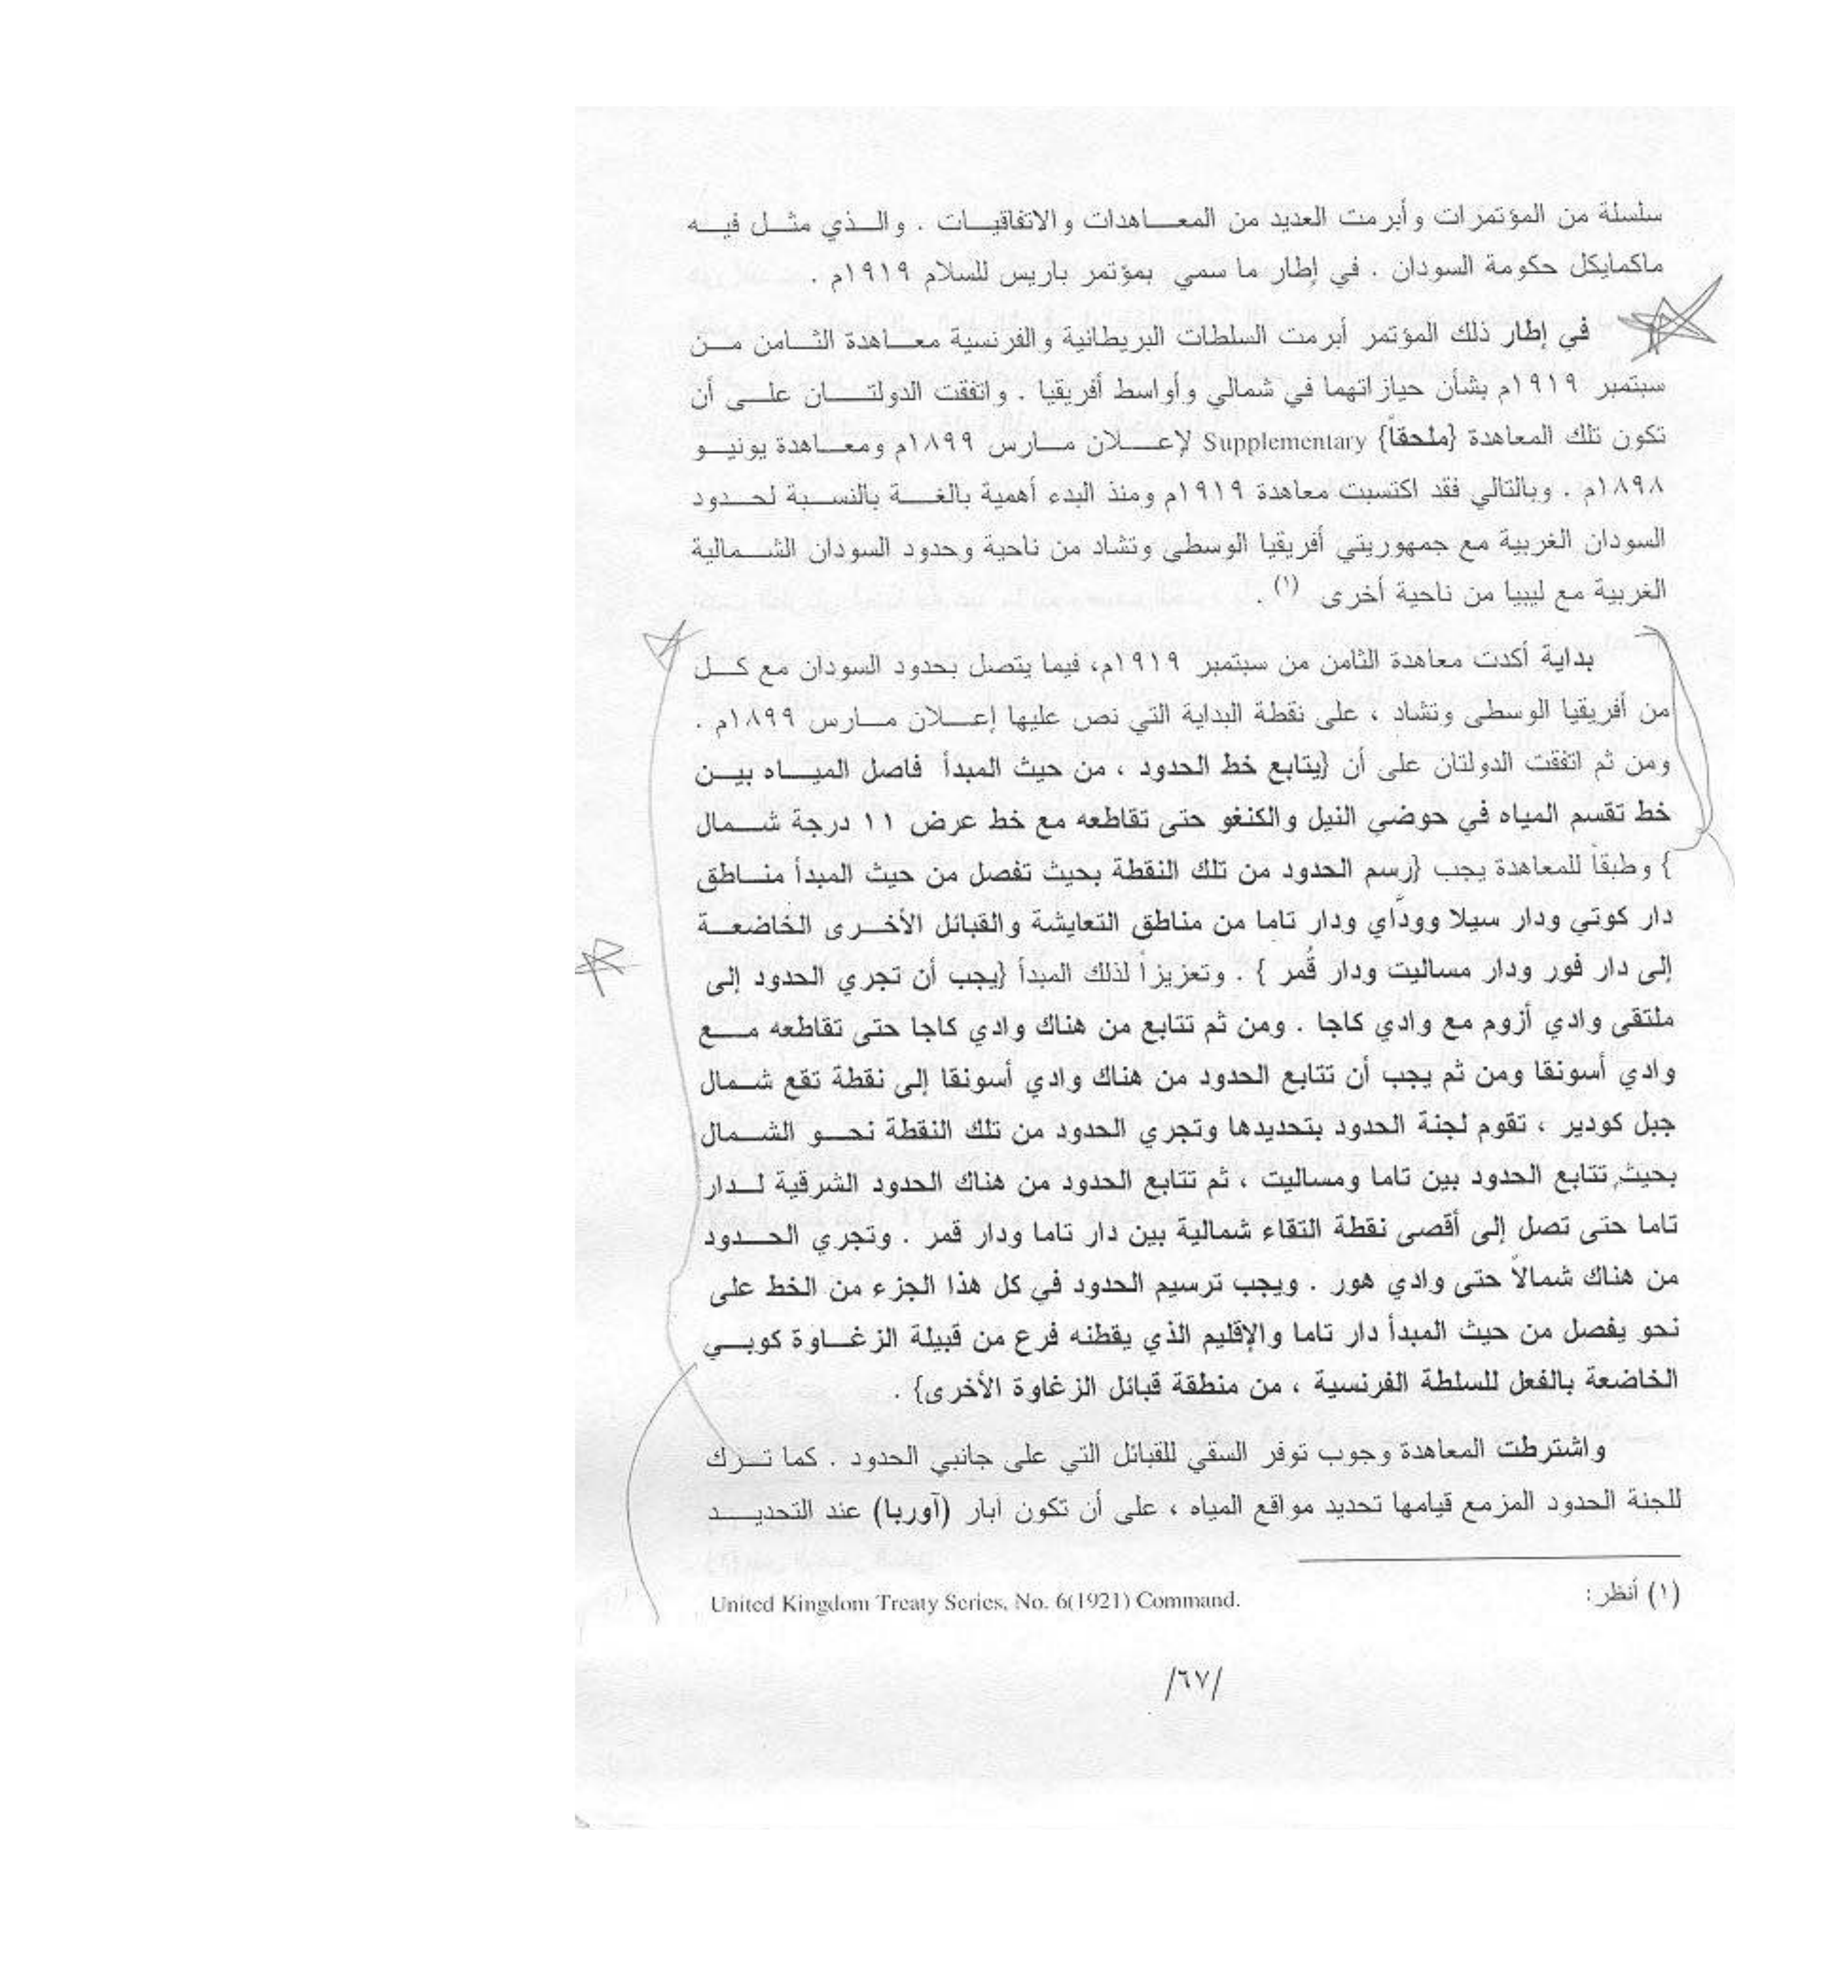 سلسلة من المؤتمرات وأبرمت العديد من المعاهدات والاتفاقيات . والذي مثل فيه
ماكمايكل حكومة السودان . في إطار ما سمي بمؤتمر باريس للسلام ١٩١٩م .
في إطار ذلك المؤتمر أبرمت السلطات البريطانية والفرنسية معاهدة الثامن من
سبتمبر ١٩١٩م بشأن حيازاتهما في شمالي وأواسط أفريقيا . واتفقت الدولتان على أن
تكون تلك المعاهدة {ملحقاً} Supplementary لإعلان مارس ١٨٩٩م ومعاهدة يونيو
١٨٩٨م . وبالتالي فقد اكتسبت معاهدة ١٩١٩م ومنذ البدء أهمية بالغة بالنسبة لحدود
السودان الغربية مع جمهوريتي أفريقيا الوسطى وتشاد من ناحية وحدود السودان الشمالية
الغربية مع ليبيا من ناحية أخرى (١) .
بداية أكدت معاهدة الثامن من سبتمبر ١٩١٩م، فيما يتصل بحدود السودان مع كل
من أفريقيا الوسطى وتشاد ، على نقطة البداية التي نص عليها إعلان مارس ١٨٩٩م .
ومن ثم اتفقت الدولتان على أن {يتابع خط الحدود ، من حيث المبدأ فاصل المياه بين
خط تقسم المياه في حوضي النيل والكنغو حتى تقاطعه مع خط عرض ١١ درجة شمال
} وطبقاً للمعاهدة يجب {رسم الحدود من تلك النقطة بحيث تفصل من حيث المبدأ مناطق
دار كوتي ودار سيلا وودّاي ودار تاما من مناطق التعايشة والقبائل الأخرى الخاضعة
إلى دار فور ودار مساليت ودار قُمر } . وتعزيزاً لذلك المبدأ {يجب أن تجري الحدود إلى
ملتقى وادي أزوم مع وادي كاجا . ومن ثم تتابع من هناك وادي كاجا حتى تقاطعه مع
وادي أسونقا ومن ثم يجب أن تتابع الحدود من هناك وادي أسونقا إلى نقطة تقع شمال
جبل كودير ، تقوم لجنة الحدود بتحديدها وتجري الحدود من تلك النقطة نحو الشمال
بحيث تتابع الحدود بين تاما ومساليت ، ثم تتابع الحدود من هناك الحدود الشرقية لدار
تاما حتى تصل إلى أقصى نقطة التقاء شمالية بين دار تاما ودار قمر . وتجري الحدود
من هناك شمالاً حتى وادي هور . ويجب ترسيم الحدود في كل هذا الجزء من الخط على
نحو يفصل من حيث المبدأ دار تاما والإقليم الذي يقطنه فرع من قبيلة الزغاوة كوبي
الخاضعة بالفعل للسلطة الفرنسية ، من منطقة قبائل الزغاوة الأخرى} .
واشترطت المعاهدة وجوب توفر السقي للقبائل التي على جانبي الحدود . كما ترك
للجنة الحدود المزمع قيامها تحديد مواقع المياه ، على أن تكون آبار (آوربا) عند التحديد
(١) أنظر: United Kingdom Treaty Series, No. 6(1921) Command.
/٦٧/